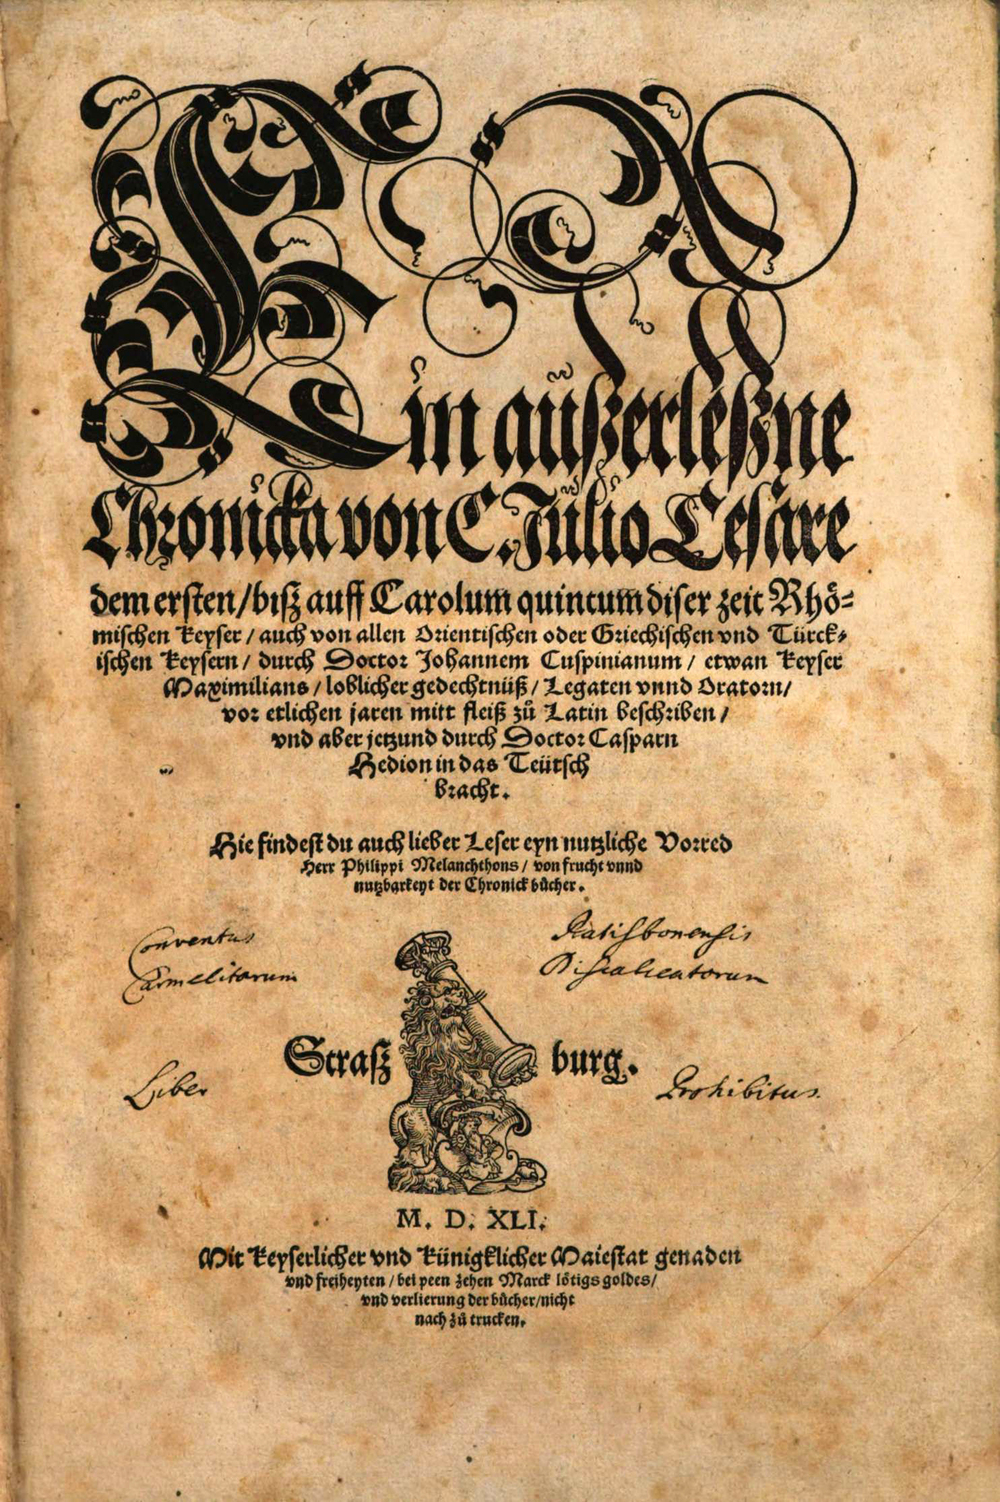 Ein außerleßne
Chronicka von C. Julio Cesare
dem ersten / biß auff Carolum quintum diser zeit Rhö-
mischen Keyser / auch von allen Orientischen oder Griechischen vnd Türck-
ischen Keysern / durch Doctor Johannem Cuspinianum / etwan Keyser
Maximilians / loblicher gedechtnüß / Legaten vnnd Oratorn /
vor etlichen jaren mitt fleiß zů Latin beschriben /
vnd aber jetzund durch Doctor Casparn
Hedion in das Teütsch
bracht.
Hie findest du auch lieber Leser eyn nutzliche Vorred
Herr Philippi Melanchthons / von frucht vnnd
nutzbarkeyt der Chronick bücher.
Conventus Ratisbonensis
Carmelitarum Discalceatorum
Straßburg.
Liber Prohibitus.
M. D. XLI.
Mit Keyserlicher vnd Künigklicher Maiestat genaden
vnd freiheyten / bei peen zehen Marck lötigs goldes /
vnd verlierung der bücher / nicht
nach zů trucken.